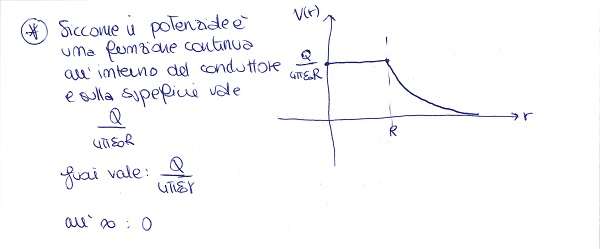 * Siccome il potenziale è
una funzione continua
all'interno del conduttore
e sulla superficie vale
Q
4πε₀R
fuori vale: Q
4πεr
all' ∞ : 0
V(r)
Q
4πεR
R
r